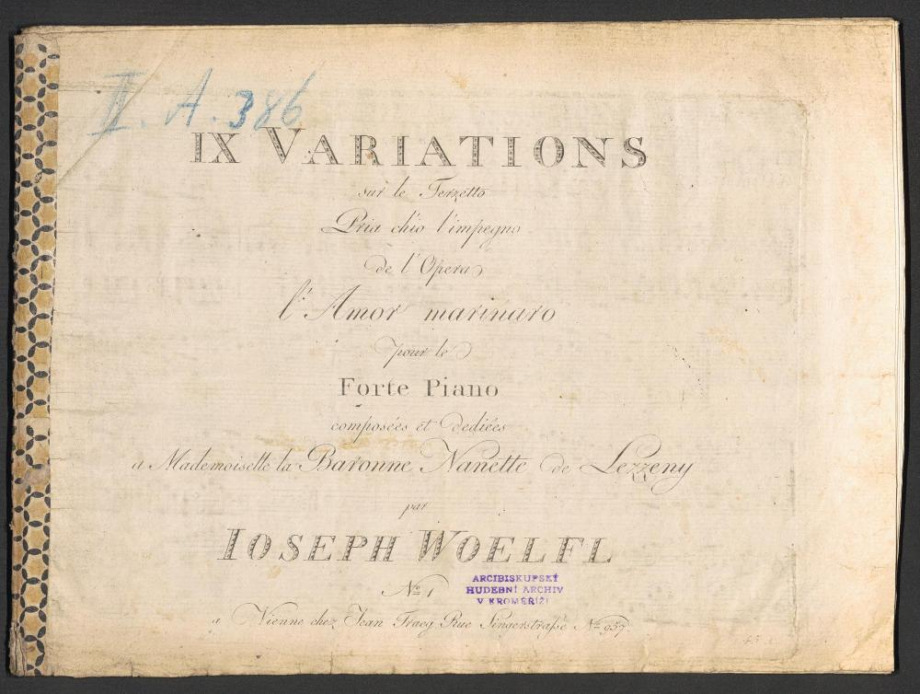 II. A. 386
IX VARIATIONS
sur le Terzetto
Pria ch'io l'impegno
de l'Opera
l'Amor marinaro
pour le
Forte Piano
composées et dediées
a Mademoiselle la Baronne Nanette de Lezzeny
par
IOSEPH WOELFL
No 1
ARCIBISKUPSKÝ
HUDEBNÍ ARCHIV
V KROMĚŘÍŽI
a Vienne chez Jean Traeg Rue Singerstrasse No 957